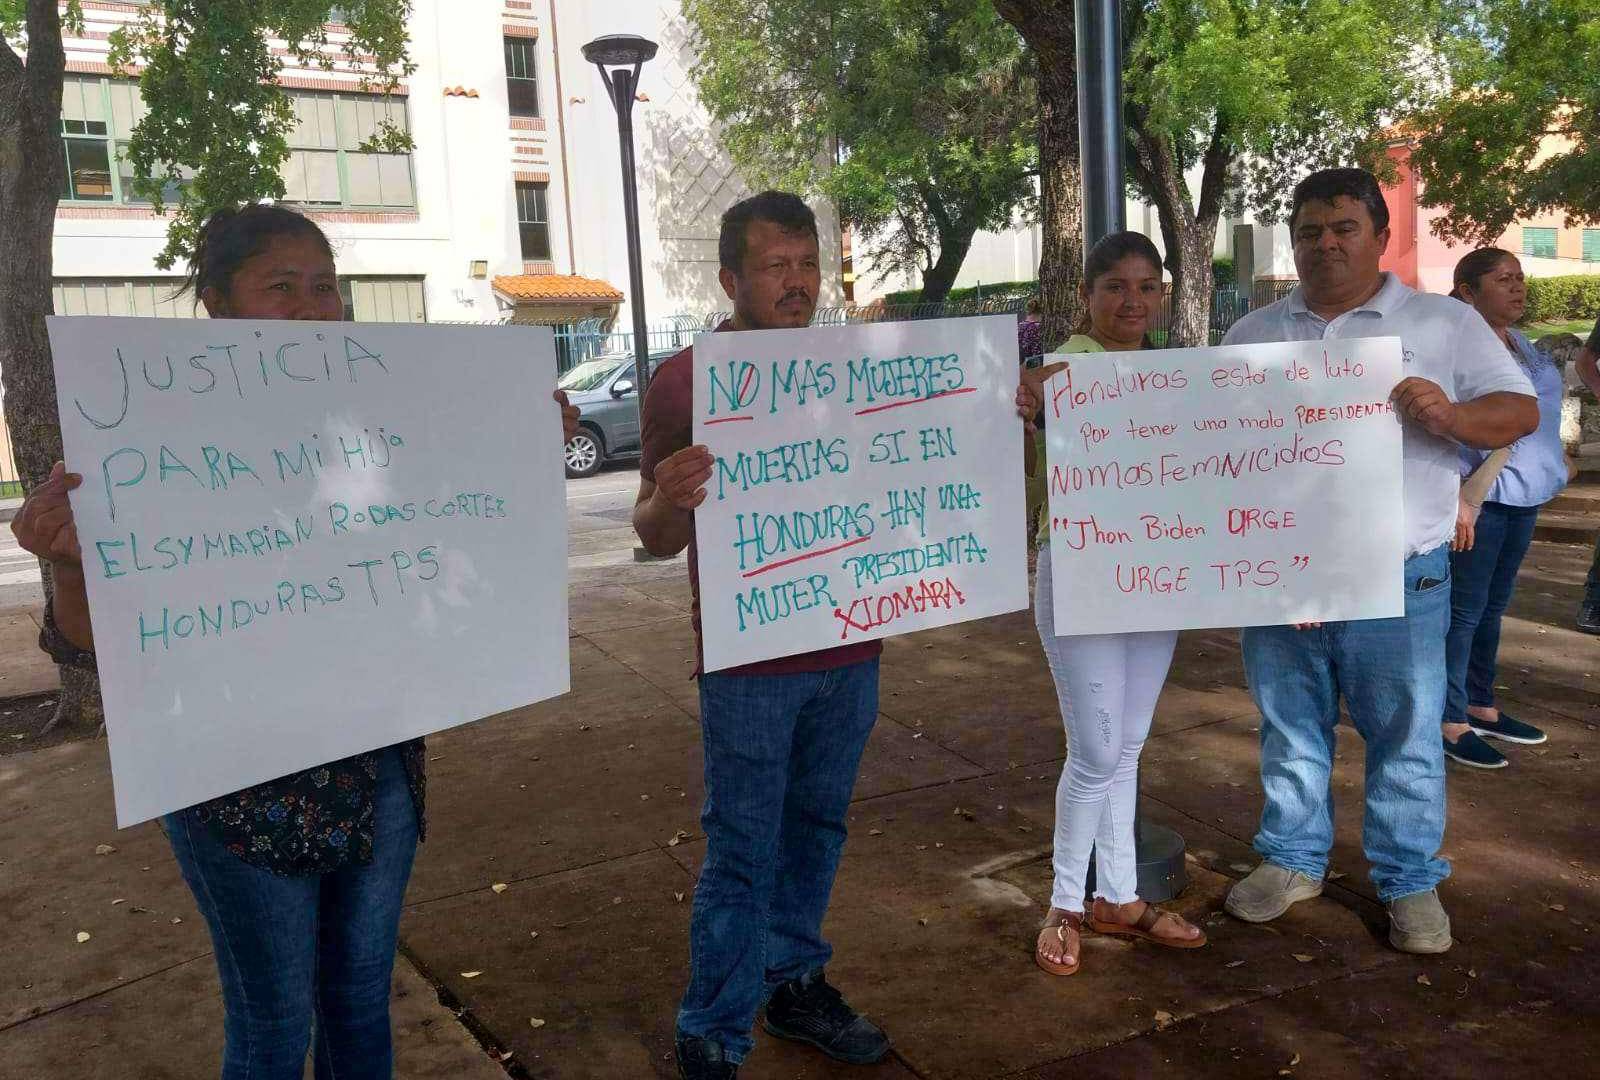 JUSTICIA
PARA Mi Hija
ELSY MARIAN RODAS CORTEZ
HONDURAS TPS
NO MAS MUJERES
MUERTAS SI EN
HONDURAS HAY UNA
MUJER PRESIDENTA
XIOMARA
Honduras está de luto
por tener una mala PRESIDENTA
NO MAS FEMNICIDIOS
"Jhon Biden URGE
URGE TPS."